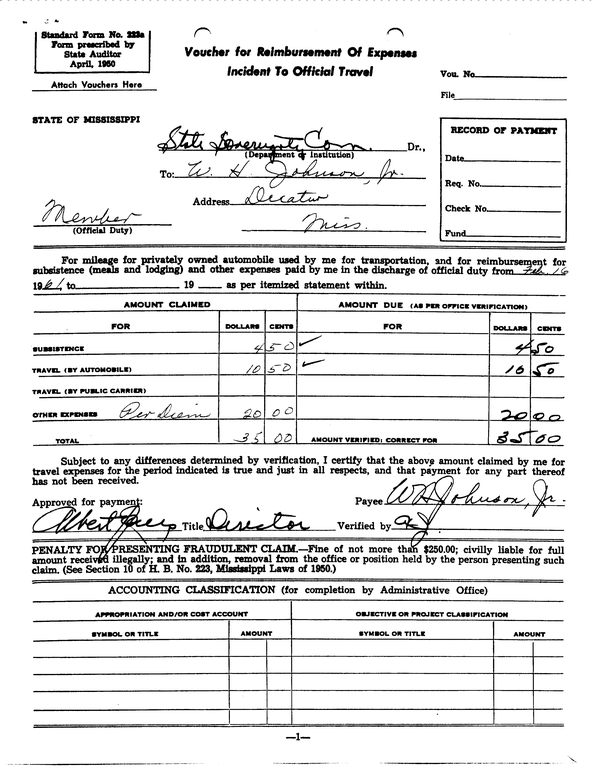 Standard Form No. 223a
Form prescribed by
State Auditor
April, 1950
Attach Vouchers Here
Voucher for Reimbursement Of Expenses
Incident To Official Travel
Vou. No.
File
STATE OF MISSISSIPPI
State Sovereignty Com. Dr.,
(Department or Institution)
To: W. H. Johnson, Jr.
Address Decatur
Miss.
Member
(Official Duty)
RECORD OF PAYMENT
Date
Req. No.
Check No.
Fund
For mileage for privately owned automobile used by me for transportation, and for reimbursement for
subsistence (meals and lodging) and other expenses paid by me in the discharge of official duty from Feb. 16
1961, to 19 as per itemized statement within.
AMOUNT CLAIMED AMOUNT DUE (AS PER OFFICE VERIFICATION)
FOR DOLLARS CENTS FOR DOLLARS CENTS
SUBSISTENCE 4 50 ✓ 4 50
TRAVEL (BY AUTOMOBILE) 10 50 ✓ 10 50
TRAVEL (BY PUBLIC CARRIER)
OTHER EXPENSES Per Diem 20 00 20 00
TOTAL 35 00 AMOUNT VERIFIED: CORRECT FOR 35 00
Subject to any differences determined by verification, I certify that the above amount claimed by me for
travel expenses for the period indicated is true and just in all respects, and that payment for any part thereof
has not been received.
Approved for payment: Payee W H Johnson, Jr.
Albert Title Director Verified by
PENALTY FOR PRESENTING FRAUDULENT CLAIM.—Fine of not more than $250.00; civilly liable for full
amount received illegally; and in addition, removal from the office or position held by the person presenting such
claim. (See Section 10 of H. B. No. 223, Mississippi Laws of 1950.)
ACCOUNTING CLASSIFICATION (for completion by Administrative Office)
APPROPRIATION AND/OR COST ACCOUNT OBJECTIVE OR PROJECT CLASSIFICATION
SYMBOL OR TITLE AMOUNT SYMBOL OR TITLE AMOUNT
—1—